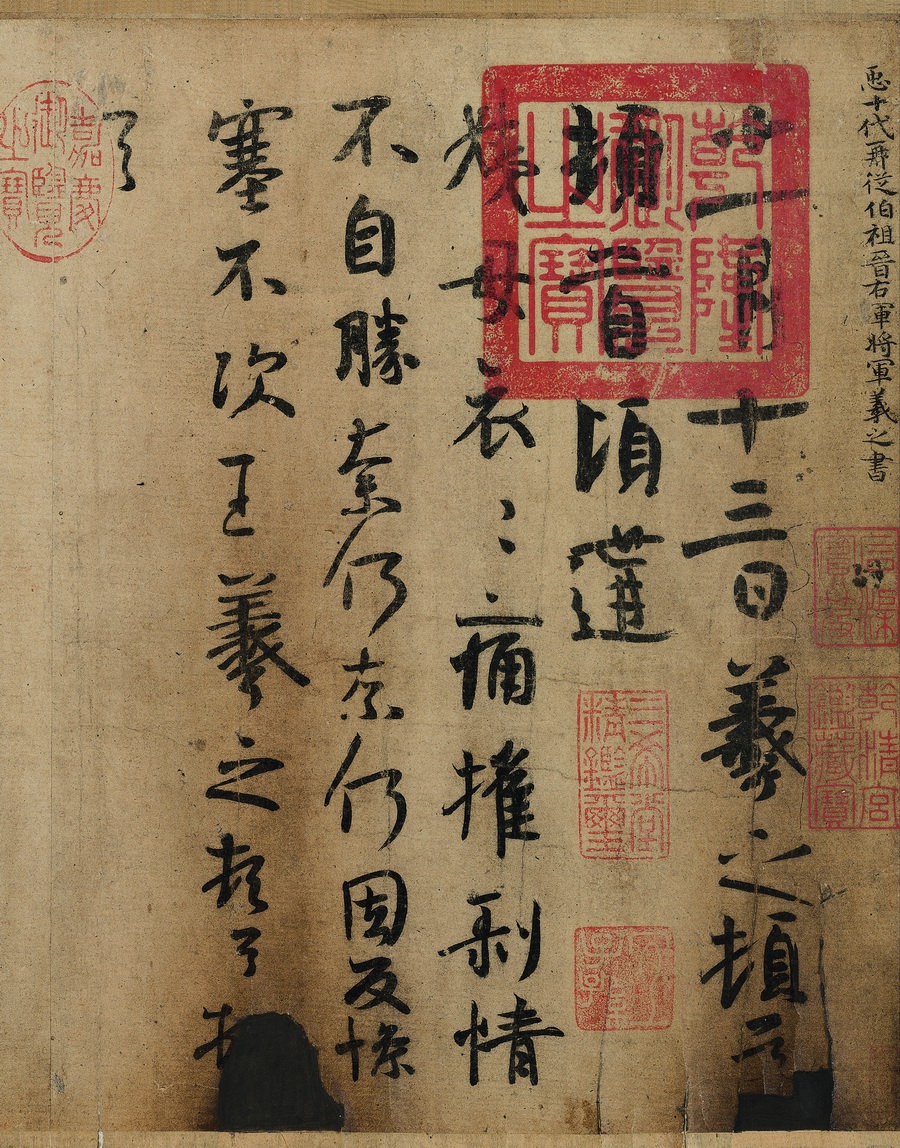 𢘑十代再從伯祖晉右軍將軍羲之書
十一月十三日羲之頓首
頓首頃遘
姨母哀〻痛摧剝情
不自勝奈何奈何因反慘
塞不次王羲之頓首頓
首
乾隆御覽之寶
石渠寶笈
乾清宮鑑藏寶
三希堂精鑑璽
嘉慶御覽之寶